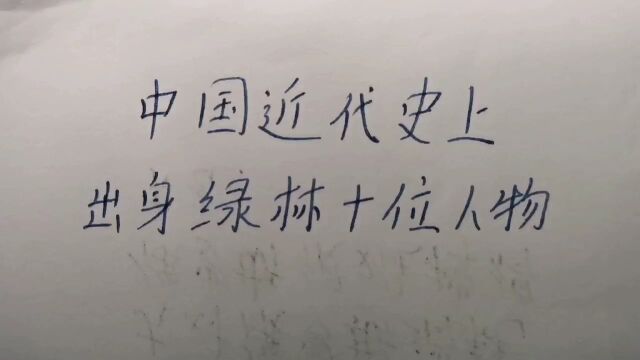 中国近代史上
出身绿林十位人物